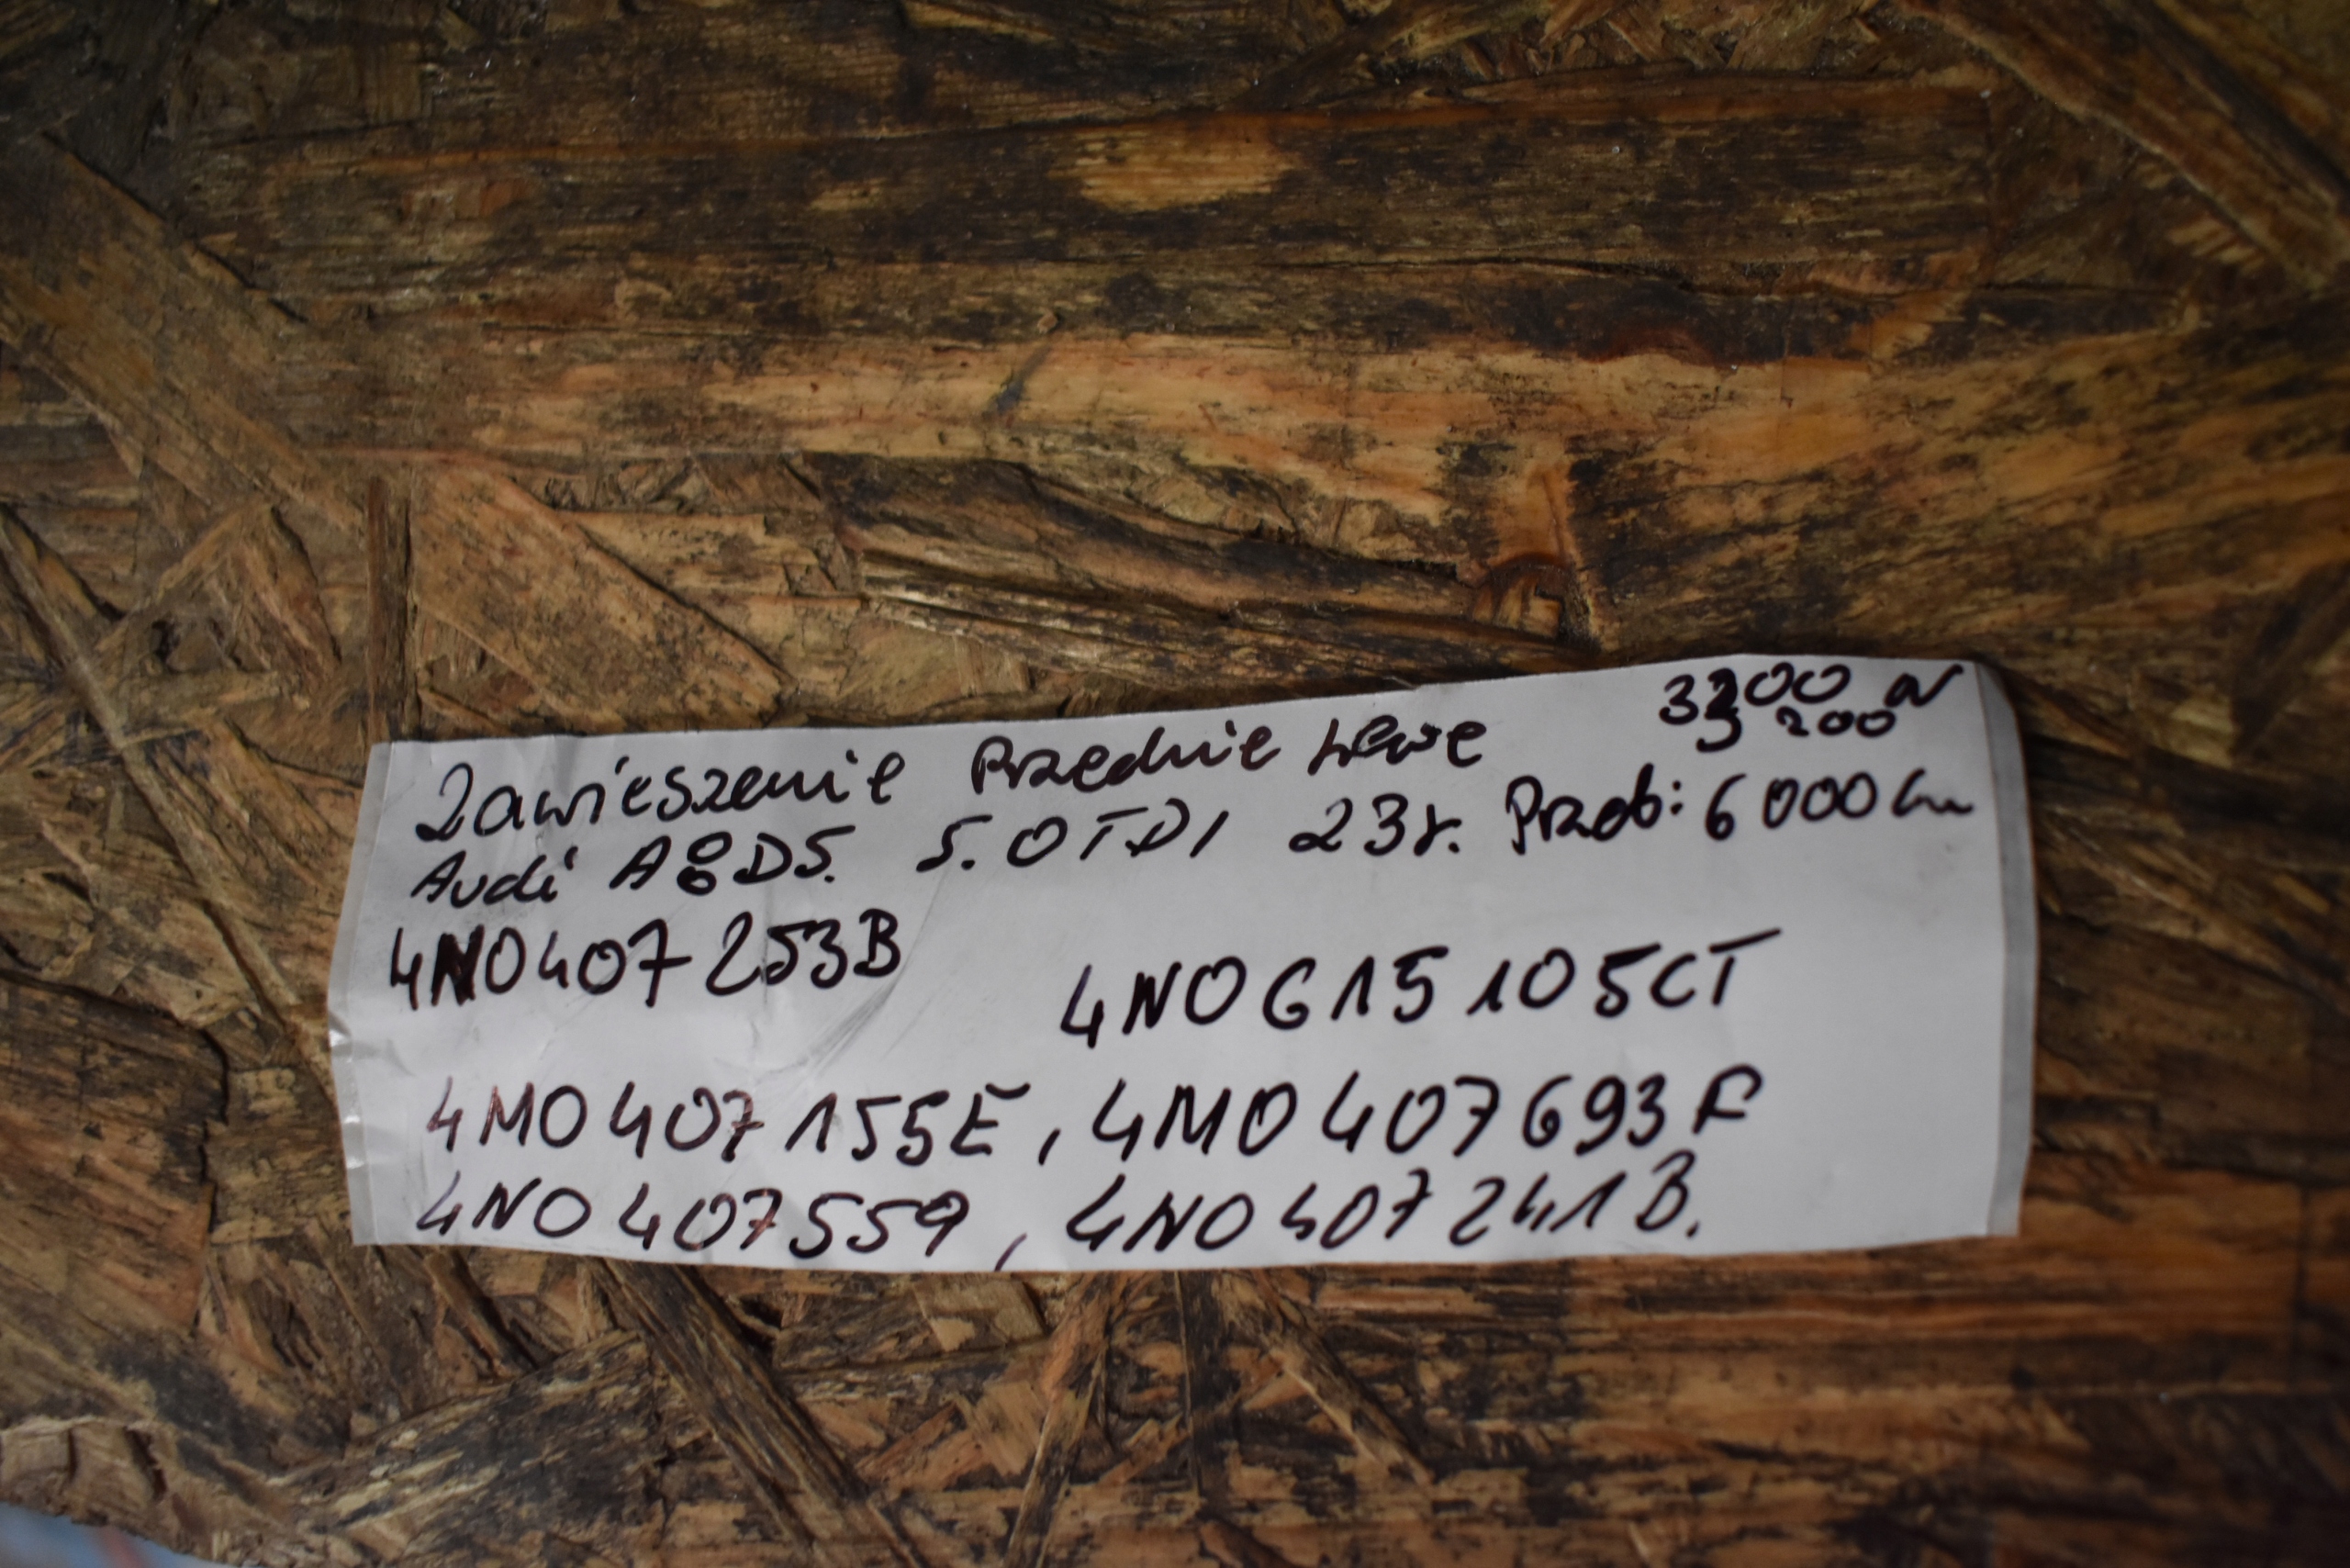 Zawieszenie Przednie Lewe
200
Audi A8D5. 5.0TDI 23r. Przeb: 6000km
4N0407253B
4N0615105CT
4M0407155E, 4M0407693F
4N0407559, 4N0407241B.